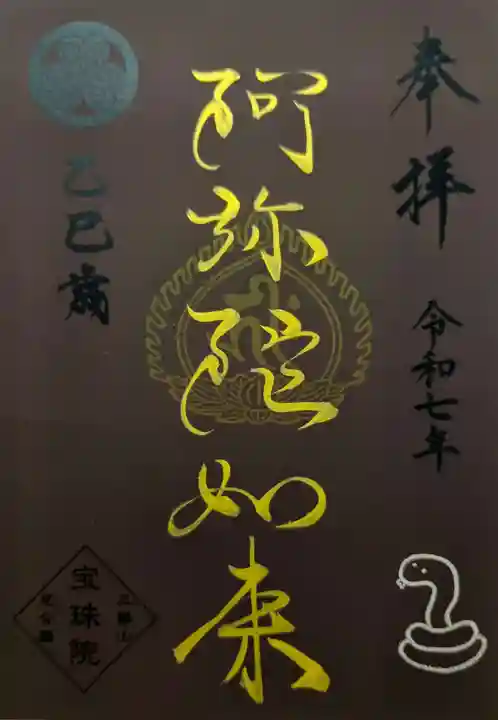 奉拝
令和七年
阿弥陀如来
乙巳歳
宝珠院